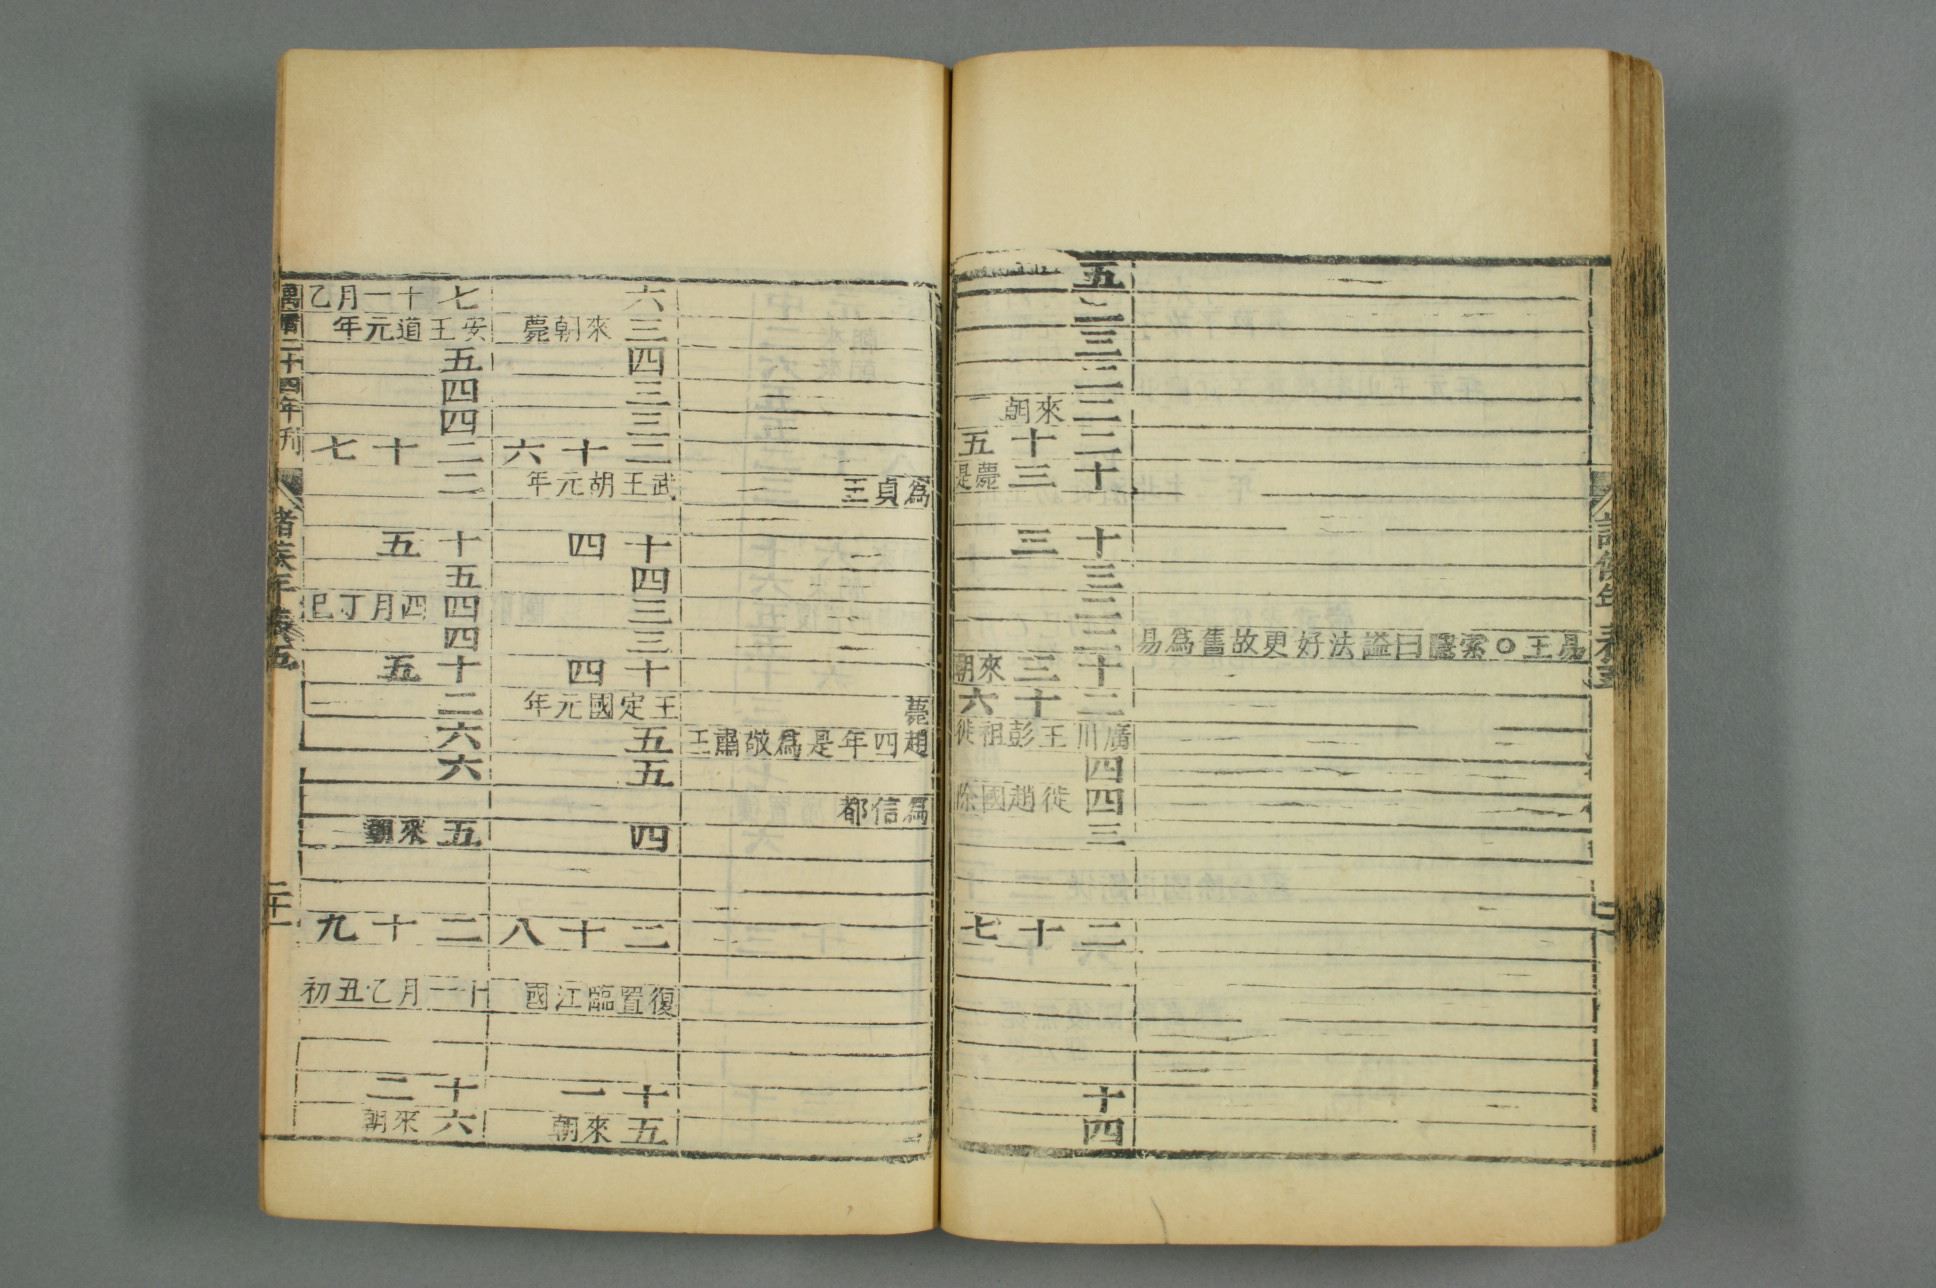 易王○索隱曰謚法好更故舊爲易
五
二
三
二
二來朝
二十五
十三薨是
十三
三
二
二
十三來朝
二十六
廣川王彭祖徙
四
四徙趙國除
三
二十七
十
四
爲貞王
薨
趙四年是爲敬肅王
爲信都
六
三來朝薨
四
三
三
二十六
武王胡元年
十四
四
三
三
十四
王定國元年
五
五
四
二十八
復置臨江國
十一
五來朝
七十一月乙
安王道元年
五
四
四
二十七
二
十五
五
四四月丁巳
四
十五
二
六
六
五來朝
二十九
十一月乙丑初
十二
六來朝
萬曆二十四年刊
諸侯年表五